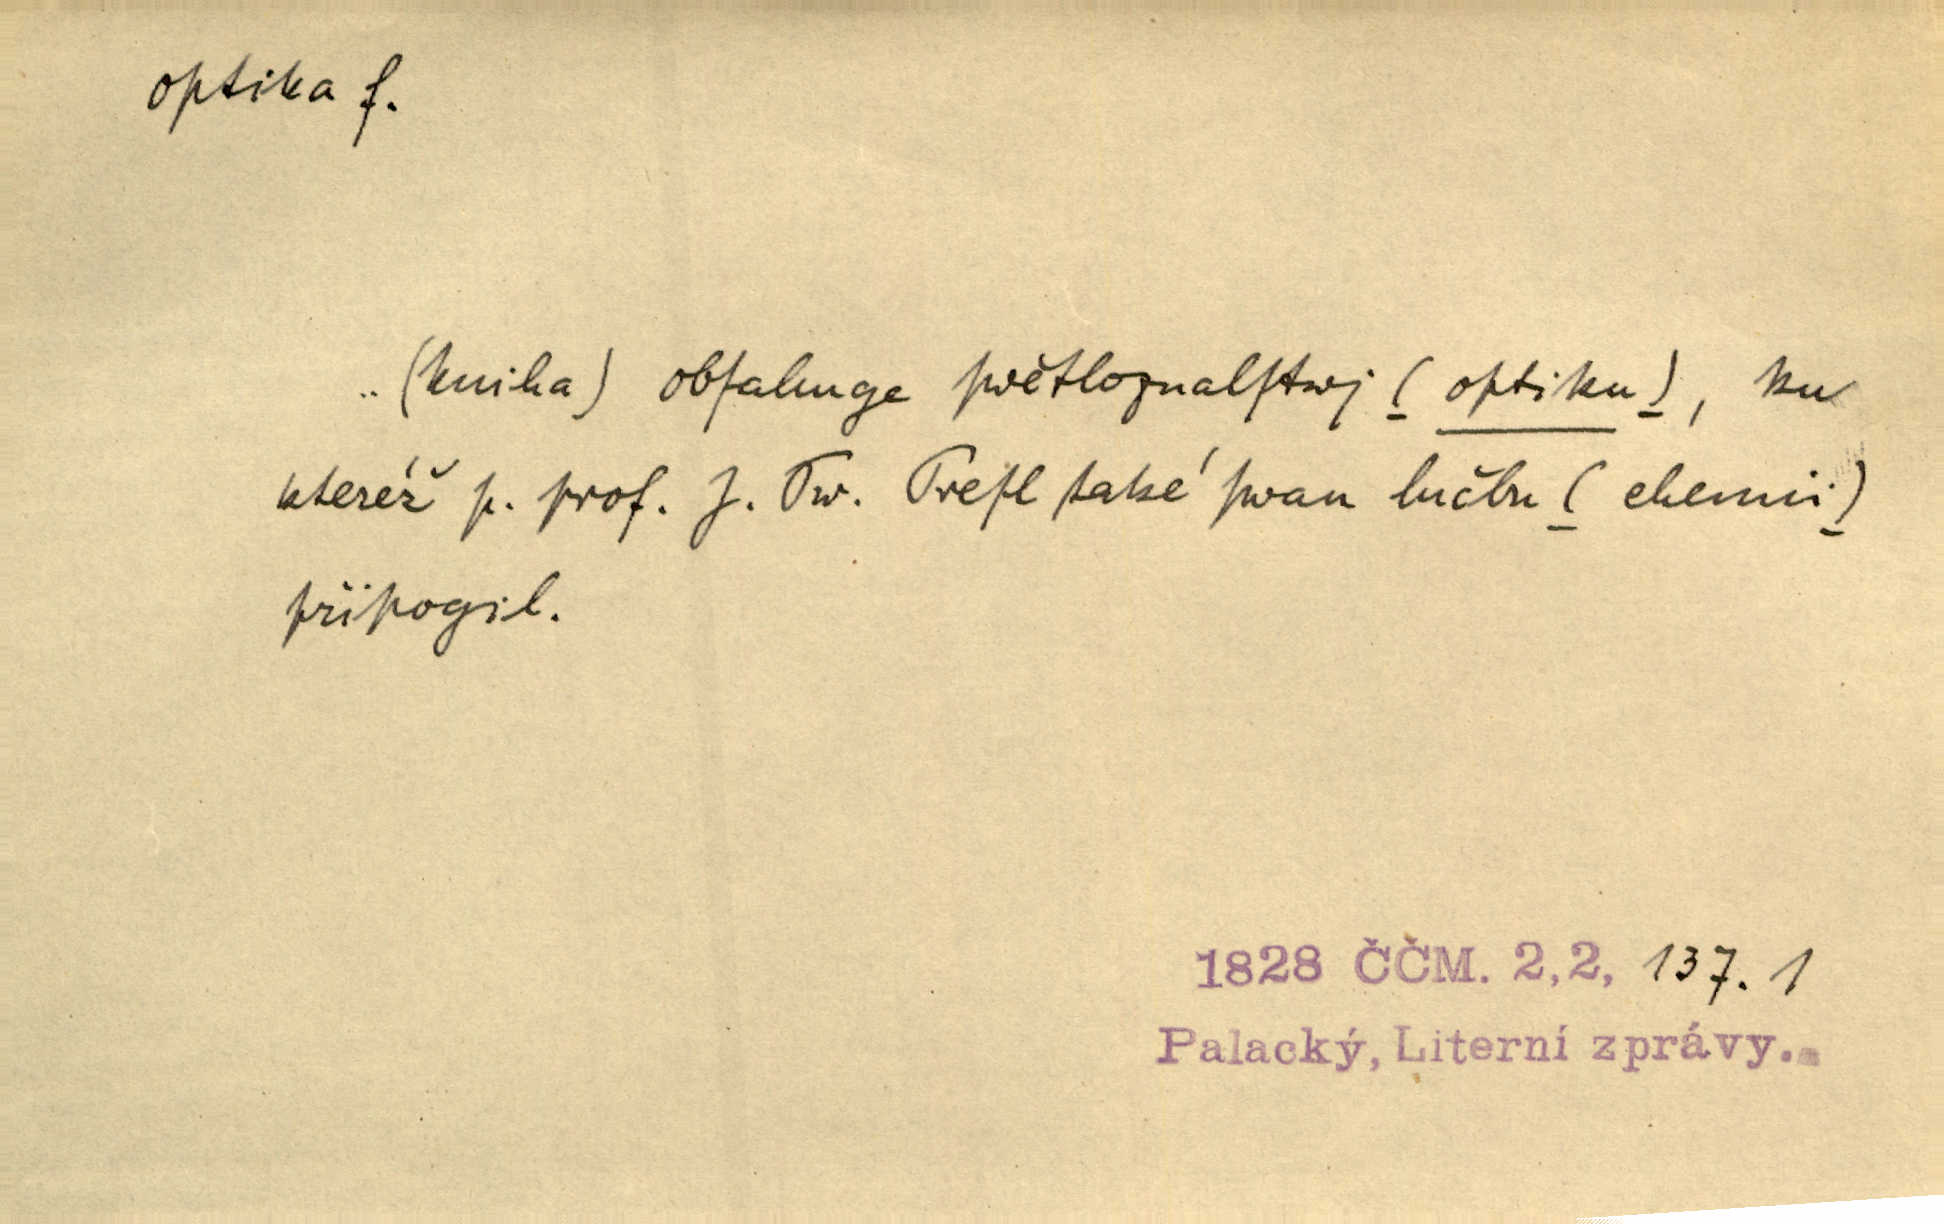 optika f.
.. (kniha) obsahuge swětloznalstwj ( optiku ), ku
kteréž p. prof. J. Fr. Wrefl také swau lučbu ( chemii )
připogil.
1828 ČČM. 2,2, 137. 1
Palacký, Literní zprávy.